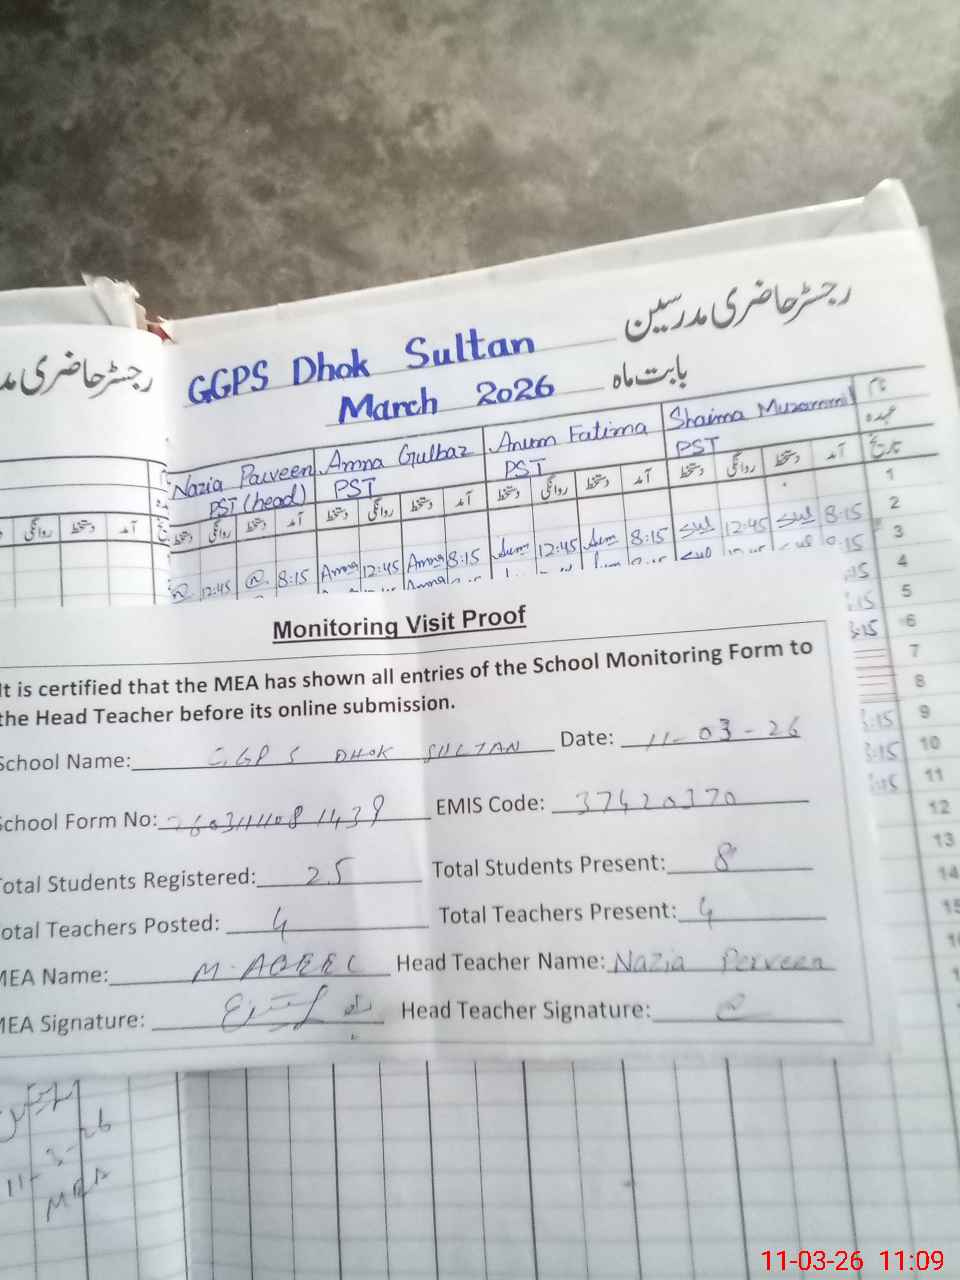 رجسٹر حاضری مدرسین
GGPS Dhok Sultan
بابت ماہ March 2026
رجسٹر حاضری مد
نام Nazia Parveen Amna Gulbaz Anum Fatima Shaima Muzammil
عہدہ PST (head) PST PST PST
تاریخ آمد دستخط روانگی دستخط آمد دستخط روانگی دستخط آمد دستخط روانگی دستخط آمد دستخط روانگی دستخط
آمد دستخط روانگی
1
2
12:45 8:15 Amna 12:45 Amna 8:15 Anm 12:45 Anm 8:15 12:45 8:15 3
4
5
6
7
8
3:15 9
3:15 10
11
12
13
14
15
Monitoring Visit Proof
It is certified that the MEA has shown all entries of the School Monitoring Form to
the Head Teacher before its online submission.
School Name: GGPS DHOK SULTAN Date: 11-03-26
School Form No: EMIS Code: 37420370
Total Students Registered: 25 Total Students Present: 8
Total Teachers Posted: 4 Total Teachers Present: 4
MEA Name: M. AQEEL Head Teacher Name: Nazia Perveen
MEA Signature: Head Teacher Signature:
11-3-26
MEA
11-03-26 11:09